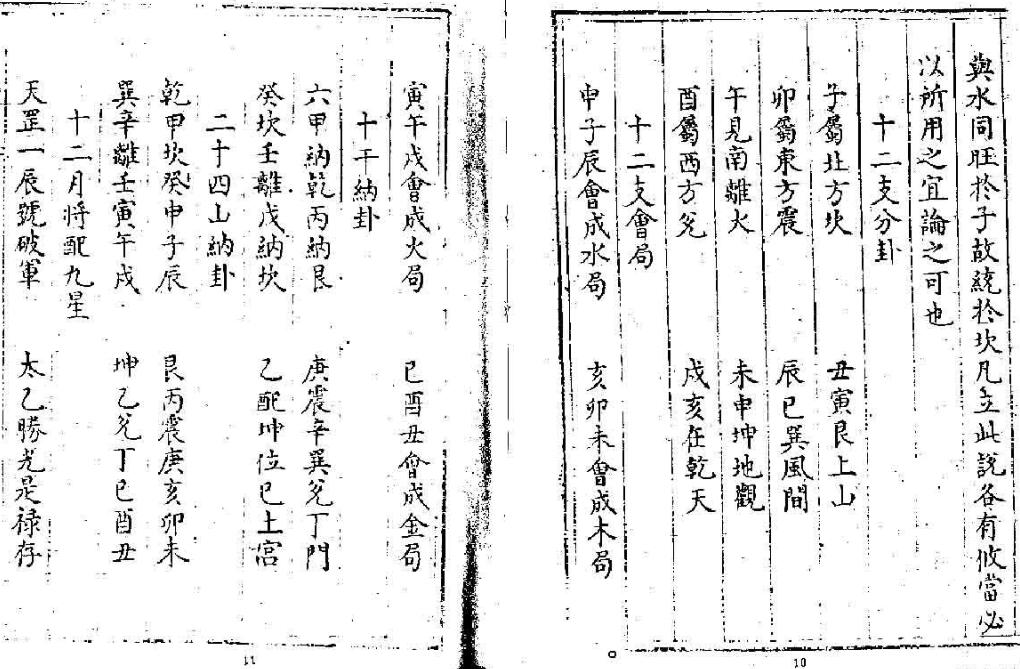 與水同旺於子故統於坎凡立此説各有攸當必
以所用之宜論之可也
十二支分卦
子屬北方坎 丑寅艮上山
卯屬東方震 辰巳巽風間
午見南離火 未申坤地觀
酉屬西方兌 戌亥在乾天
十二支會局
申子辰會成水局 亥卯未會成木局
10
寅午戌會成火局 巳酉丑會成金局
十干納卦
六甲納乾丙納艮 庚震辛巽兌丁門
癸坎壬離戊納坎 乙配坤位巳土宮
二十四山納卦
乾甲坎癸申子辰 艮丙震庚亥卯未
巽辛離壬寅午戌 坤乙兌丁巳酉丑
十二月將配九星
天罡一辰號破軍 太乙勝光是祿存
11